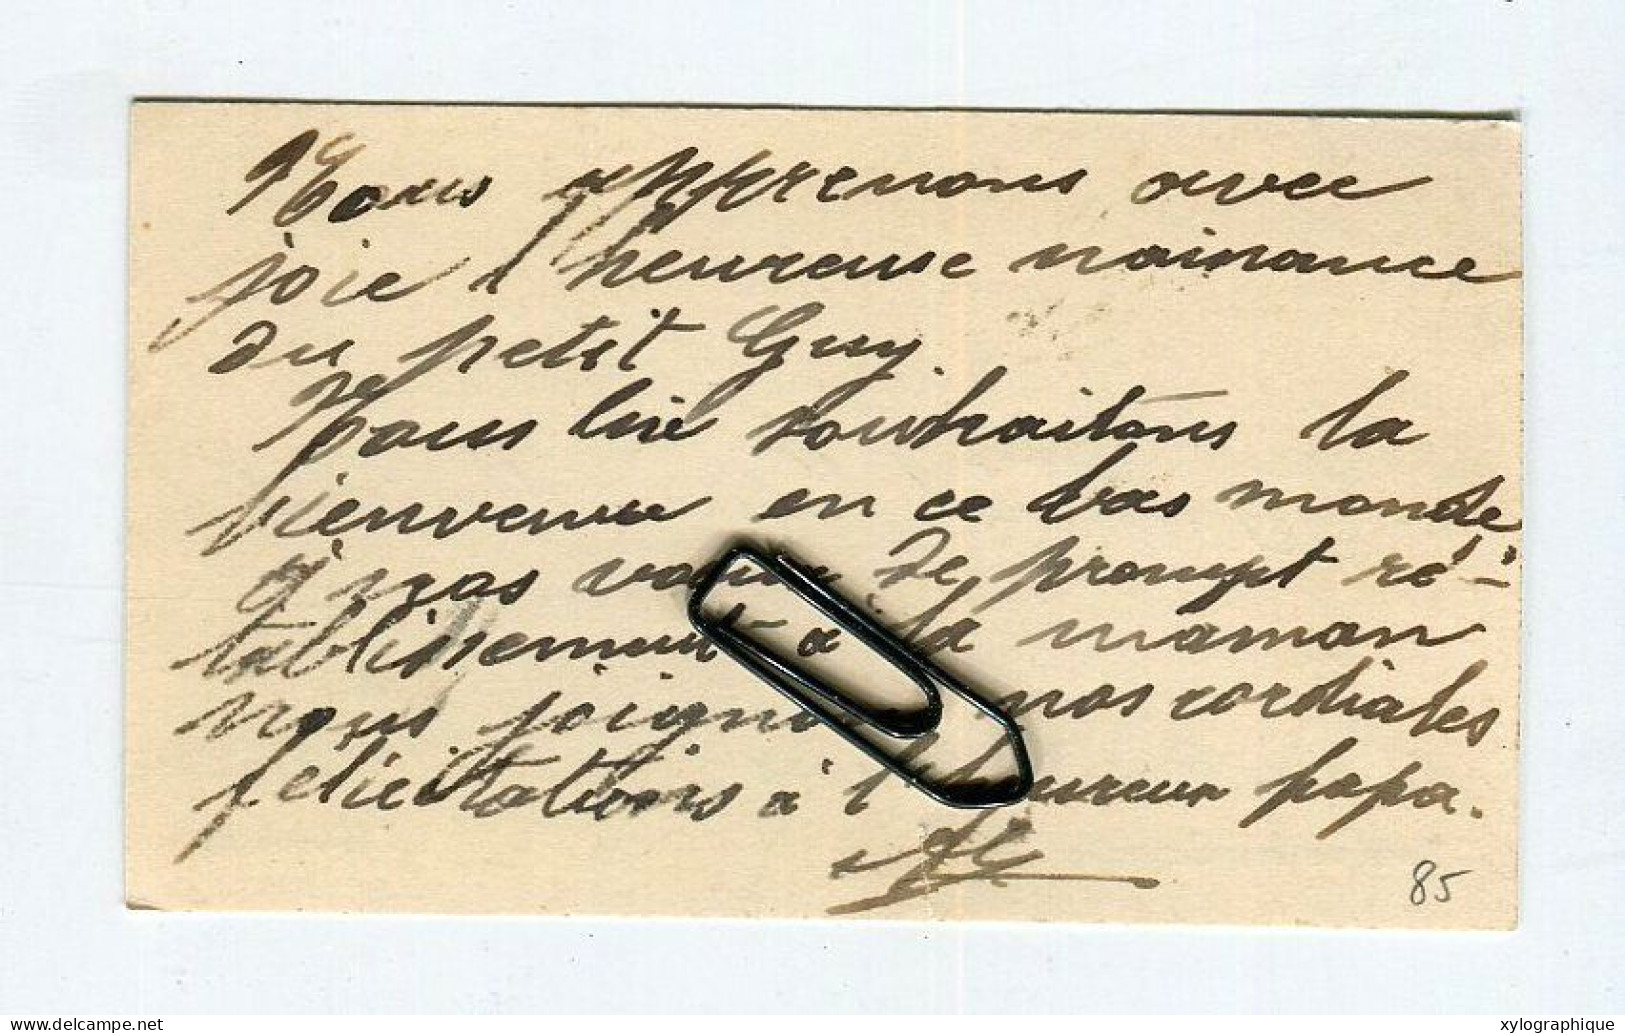 Nous apprenons avec
joie l'heureuse naissance
du petit Guy.
Nous lui souhaitons la
bienvenue en ce bas monde
à nos vœux de prompt ré-
tablissement à la maman
nous joignons nos cordiales
félicitations à l'heureux papa.
85
delcampe.net
xylographique